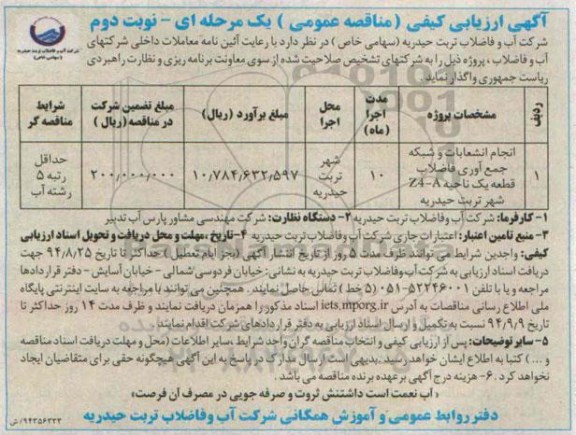 آگهی ارزیابی کیفی (مناقصه عمومی) یک مرحله ای - نوبت دوم
شرکت آب و فاضلاب تربت حیدریه (سهامی خاص)
شرکت آب و فاضلاب تربت حیدریه (سهامی خاص) در نظر دارد با رعایت آئین نامه معاملات داخلی شرکتهای
آب و فاضلاب ، پروژه ذیل را به شرکتهای تشخیص صلاحیت شده از سوی معاونت برنامه ریزی و نظارت راهبردی
ریاست جمهوری واگذار نماید.
ردیف | مشخصات پروژه | مدت اجرا (ماه) | محل اجرا | مبلغ برآورد (ریال) | مبلغ تضمین شرکت در مناقصه (ریال) | شرایط مناقصه گر
۱ | انجام انشعابات و شبکه جمع آوری فاضلاب قطعه یک ناحیه Z4-8 شهر تربت حیدریه | ۱۰ | شهر تربت حیدریه | ۱۰,۷۸۴,۶۳۲,۵۹۷ | ۲۰۰,۰۰۰,۰۰۰ | حداقل رتبه ۵ رشته آب
۱- کارفرما: شرکت آب وفاضلاب تربت حیدریه ۲- دستگاه نظارت: شرکت مهندسی مشاور پارس آب تدبیر
۳- منبع تامین اعتبار: اعتبارات جاری شرکت آب وفاضلاب تربت حیدریه ۴- تاریخ ،مهلت و محل دریافت و تحویل اسناد ارزیابی
کیفی: واجدین شرایط می توانند ظرف مدت ۵ روز از تاریخ انتشار آگهی (بجز ایام تعطیل) حداکثر تا تاریخ ۹۴/۸/۲۵ جهت
دریافت اسناد ارزیابی به شرکت آب وفاضلاب تربت حیدریه به نشانی: خیابان فردوسی شمالی - خیابان آسایش - دفتر قراردادها
مراجعه و یا با تلفن ۵۲۲۴۶۰۰۱-۰۵۱ (۵ خط) تماس حاصل نمایند. همچنین می توانند با مراجعه به سایت اینترنتی پایگاه
ملی اطلاع رسانی مناقصات به آدرس iets.mporg.ir اسناد مذکور را همزمان دریافت نمایند و ظرف مدت ۱۴ روز حداکثر تا
تاریخ ۹۴/۹/۹ نسبت به تکمیل و ارسال اسناد ارزیابی به دفتر قراردادهای شرکت اقدام نمایند.
۵- سایر توضیحات: پس از ارزیابی کیفی و انتخاب مناقصه گران واجد شرایط ،سایر اطلاعات (محل و مهلت دریافت اسناد مناقصه
و ...) کتبا به اطلاع ایشان خواهد رسید. بدیهی است ارسال مدارک در پاسخ به این آگهی هیچگونه حقی برای متقاضیان ایجاد
نخواهد کرد. ۶- هزینه درج آگهی برعهده برنده مناقصه می باشد.
« آب نعمت است داشتنش ثروت و صرفه جویی در مصرف آن فرصت»
دفتر روابط عمومی و آموزش همگانی شرکت آب وفاضلاب تربت حیدریه
۹۴۳۵۶۳۳۳/ش